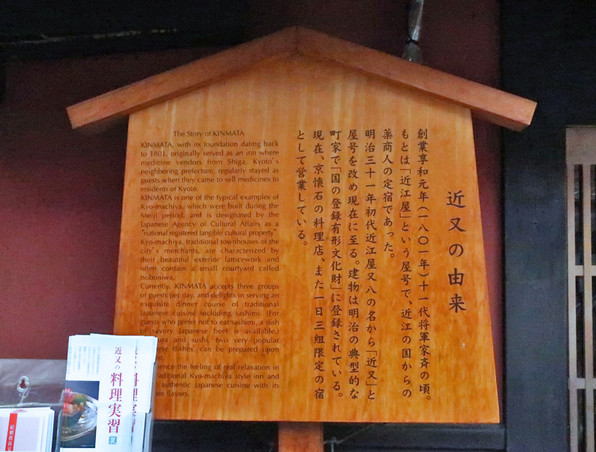 近又の由来
創業享和元年(一八〇一年)十一代将軍家斉の頃。
もとは「近江屋」という屋号で、近江の国からの
薬商人の定宿であった。
明治三十一年初代近江屋又八の名から「近又」と
屋号を改め現在に至る。建物は明治の典型的な
町家で「国の登録有形文化財」に登録されている。
現在、京懐石の料理店、また一日三組限定の宿
として営業している。
The Story of KINMATA
KINMATA, with its foundation dating back
to 1801, originally served as an inn where
medicine vendors from Shiga, Kyoto's
neighboring prefecture, regularly stayed as
guests when they came to sell medicines to
residents of Kyoto.
KINMATA is one of the typical examples of
Kyo-machiya, which were built during the
Meiji period, and is designated by the
Japanese Agency of Cultural Affairs as a
"national registered tangible cultural property".
Kyo-machiya, traditional townhouses of the
city's merchants, are characterized by
their beautiful exterior latticework and
often contain a small courtyard called
tsuboniwa.
Currently, KINMATA accepts three groups
of guests per day, and delights in serving an
exquisite dinner course of traditional
Japanese cuisine including sashimi. (For
guests who prefer not to eat sashimi, a dish
of savory Japanese beef is available.)
and sushi, two very popular
dishes, can be prepared upon
the feeling of real relaxation in
traditional Kyo-machiya style inn and
authentic Japanese cuisine with its
flavors.
近又の
料理実習